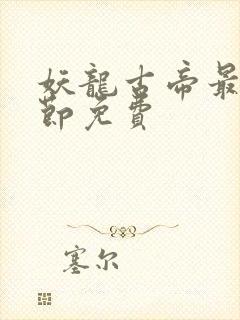 妖龍古帝最
節免費
塞尔